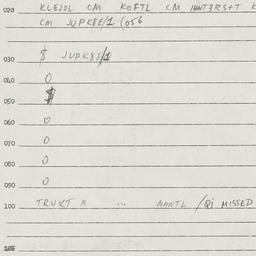 020 KLEJDL CM KOFTL CM
CM JUPK8E/1 (056
030 $ JUPK8E/1
040 0
050 $
060 0
070 0
080 0
090 0
100 TRUKT A ... MANTL /QI MISSED